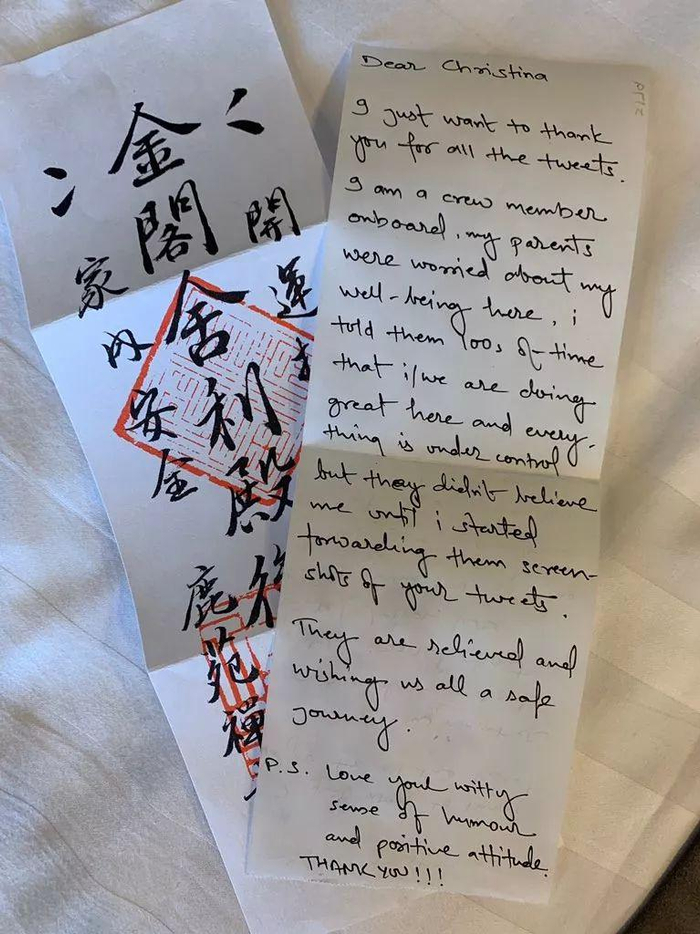 開運
金閣舎利殿
家内安全
鹿苑禪
Dear Christina
I just want to thank
you for all the tweets.
I am a crew member
onboard, my parents
were worried about my
well-being here, i
told them 100s of-time
that i/we are doing
great here and every-
thing is under control
but they didn't believe
me until i started
forwarding them screen-
shots of your tweets.
They are relieved and
wishing us all a safe
journey.
P.S. Love your witty
sense of humour
and positive attitude.
THANK YOU!!!